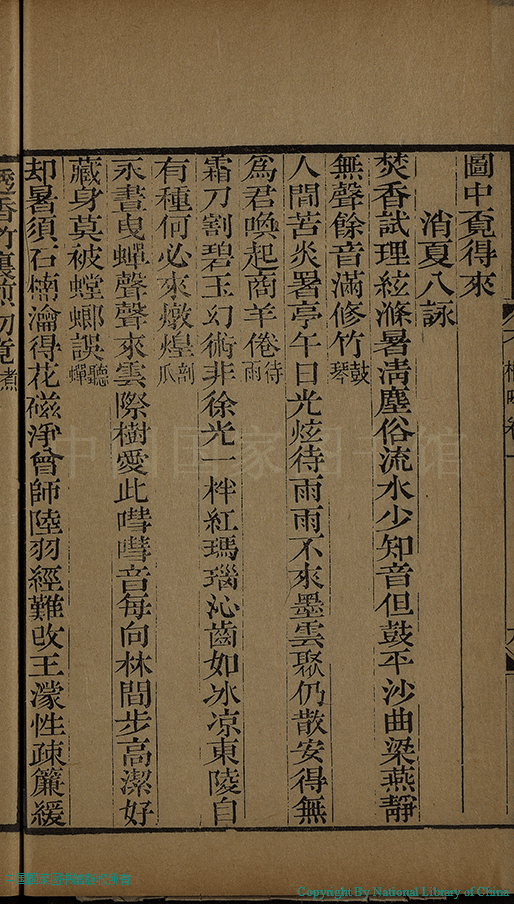 圖中覔得來
消夏八詠
焚香試理絃滌暑淸塵俗流水少知音但鼓平沙曲梁燕靜
無聲餘音滿修竹鼓琴
人間苦炎暑亭午日光炫待雨雨不來墨雲聚仍散安得無
爲君喚起商羊倦待雨
霜刀割碧玉幻術非徐光一柈紅瑪瑙沁齒如冰凉東陵自
有種何必來燉煌剖瓜
永晝曳蟬聲聲來雲際樹愛此嘒嘒音每向林間步高潔好
藏身莫被螳螂誤聽蟬
却暑須石瀹得花磁淨曾師陸羽經難改王濛性疎簾緩
透香竹裏
中国国家图书馆
Copyright By National Library of China